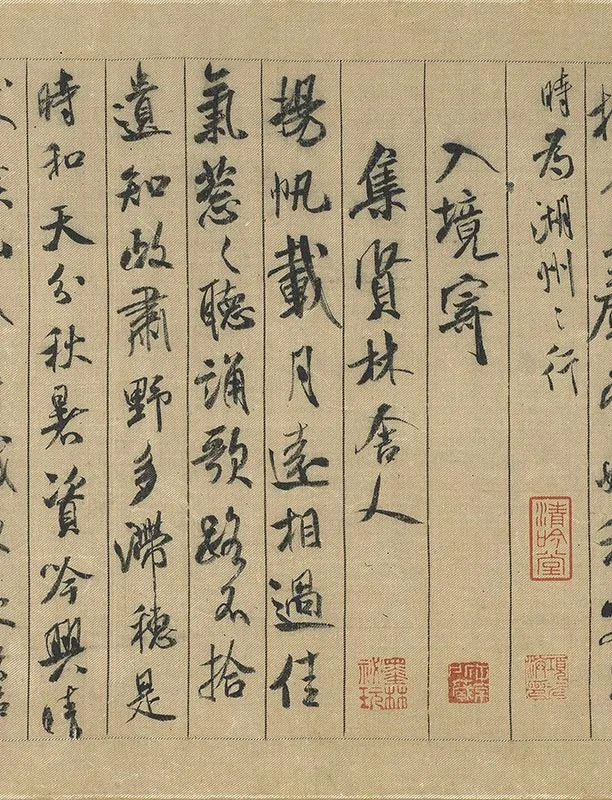 時為湖州之行
清吟堂
入境寄
集賢林舍人
墨林祕玩
揚帆載月遠相過佳
氣蔥〻聽誦歌路不拾
遺知政肅野多滯穗是
時和天分秋暑資吟興晴